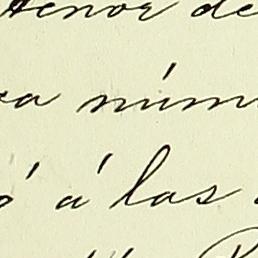 tenor de
ra núm
ó á las